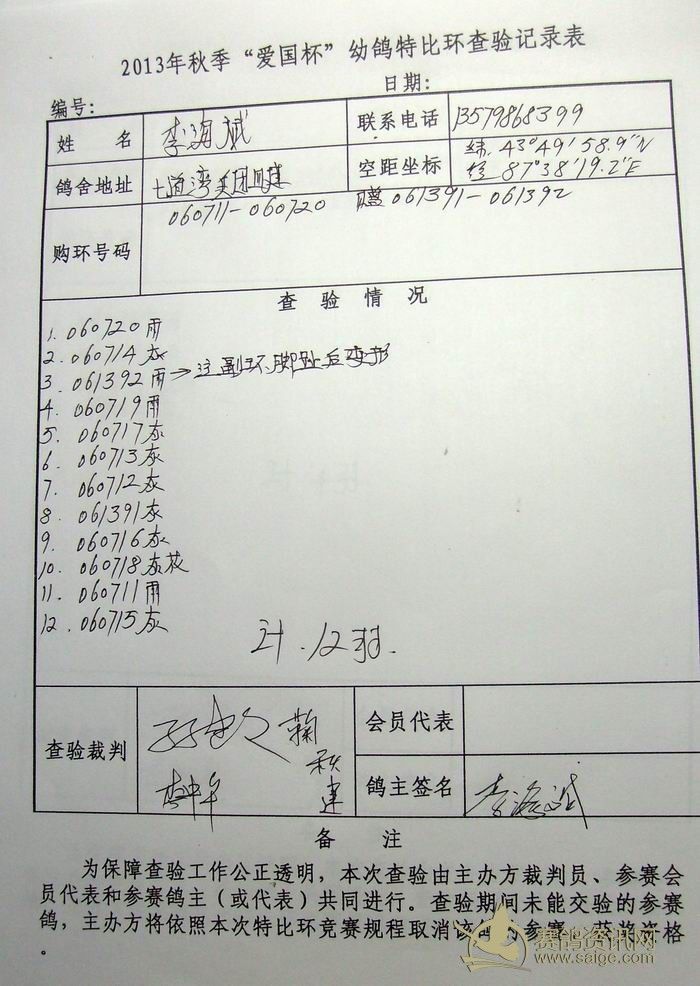 2013年秋季“爱国杯”幼鸽特比环查验记录表
编号: 日期:
姓 名 李海斌 联系电话 13579868399
鸽舍地址 七道湾 空距坐标 纬 43°49′58.9″N
经 87°38′19.2″E
购环号码 060711-060720 赠 061391-061392
查 验 情 况
1. 060720雨
2. 060714灰
3. 061392雨→注副环脚趾后变形
4. 060719雨
5. 060717灰
6. 060713灰
7. 060712灰
8. 061391灰
9. 060716灰
10. 060718灰花
11. 060711雨
12. 060715灰
计.12羽.
查验裁判 鞠秋建 会员代表
鸽主签名 李海斌
备 注
为保障查验工作公正透明，本次查验由主办方裁判员、参赛会
员代表和参赛鸽主（或代表）共同进行。查验期间未能交验的参赛
鸽，主办方将依照本次特比环竞赛规程取消该鸽的参赛、获奖资格
。
赛鸽资讯网
www.saige.com